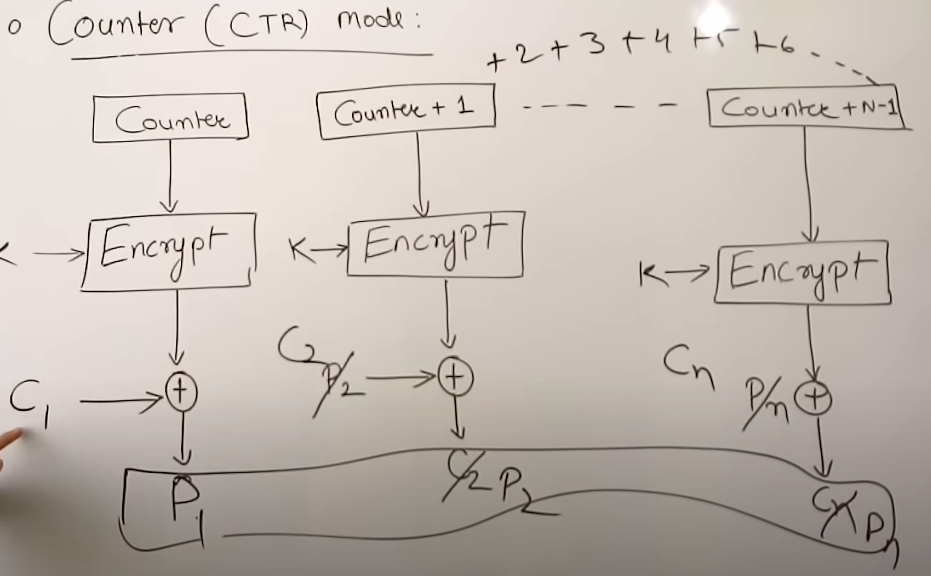 o Counter (CTR) mode:
+2+3+4+5+6
Counter
Counter + 1
Counter + N-1
K
Encrypt
K
Encrypt
K
Encrypt
C1
C2
P2
Cn
Pn
P1
C2 P2
Cn Pn